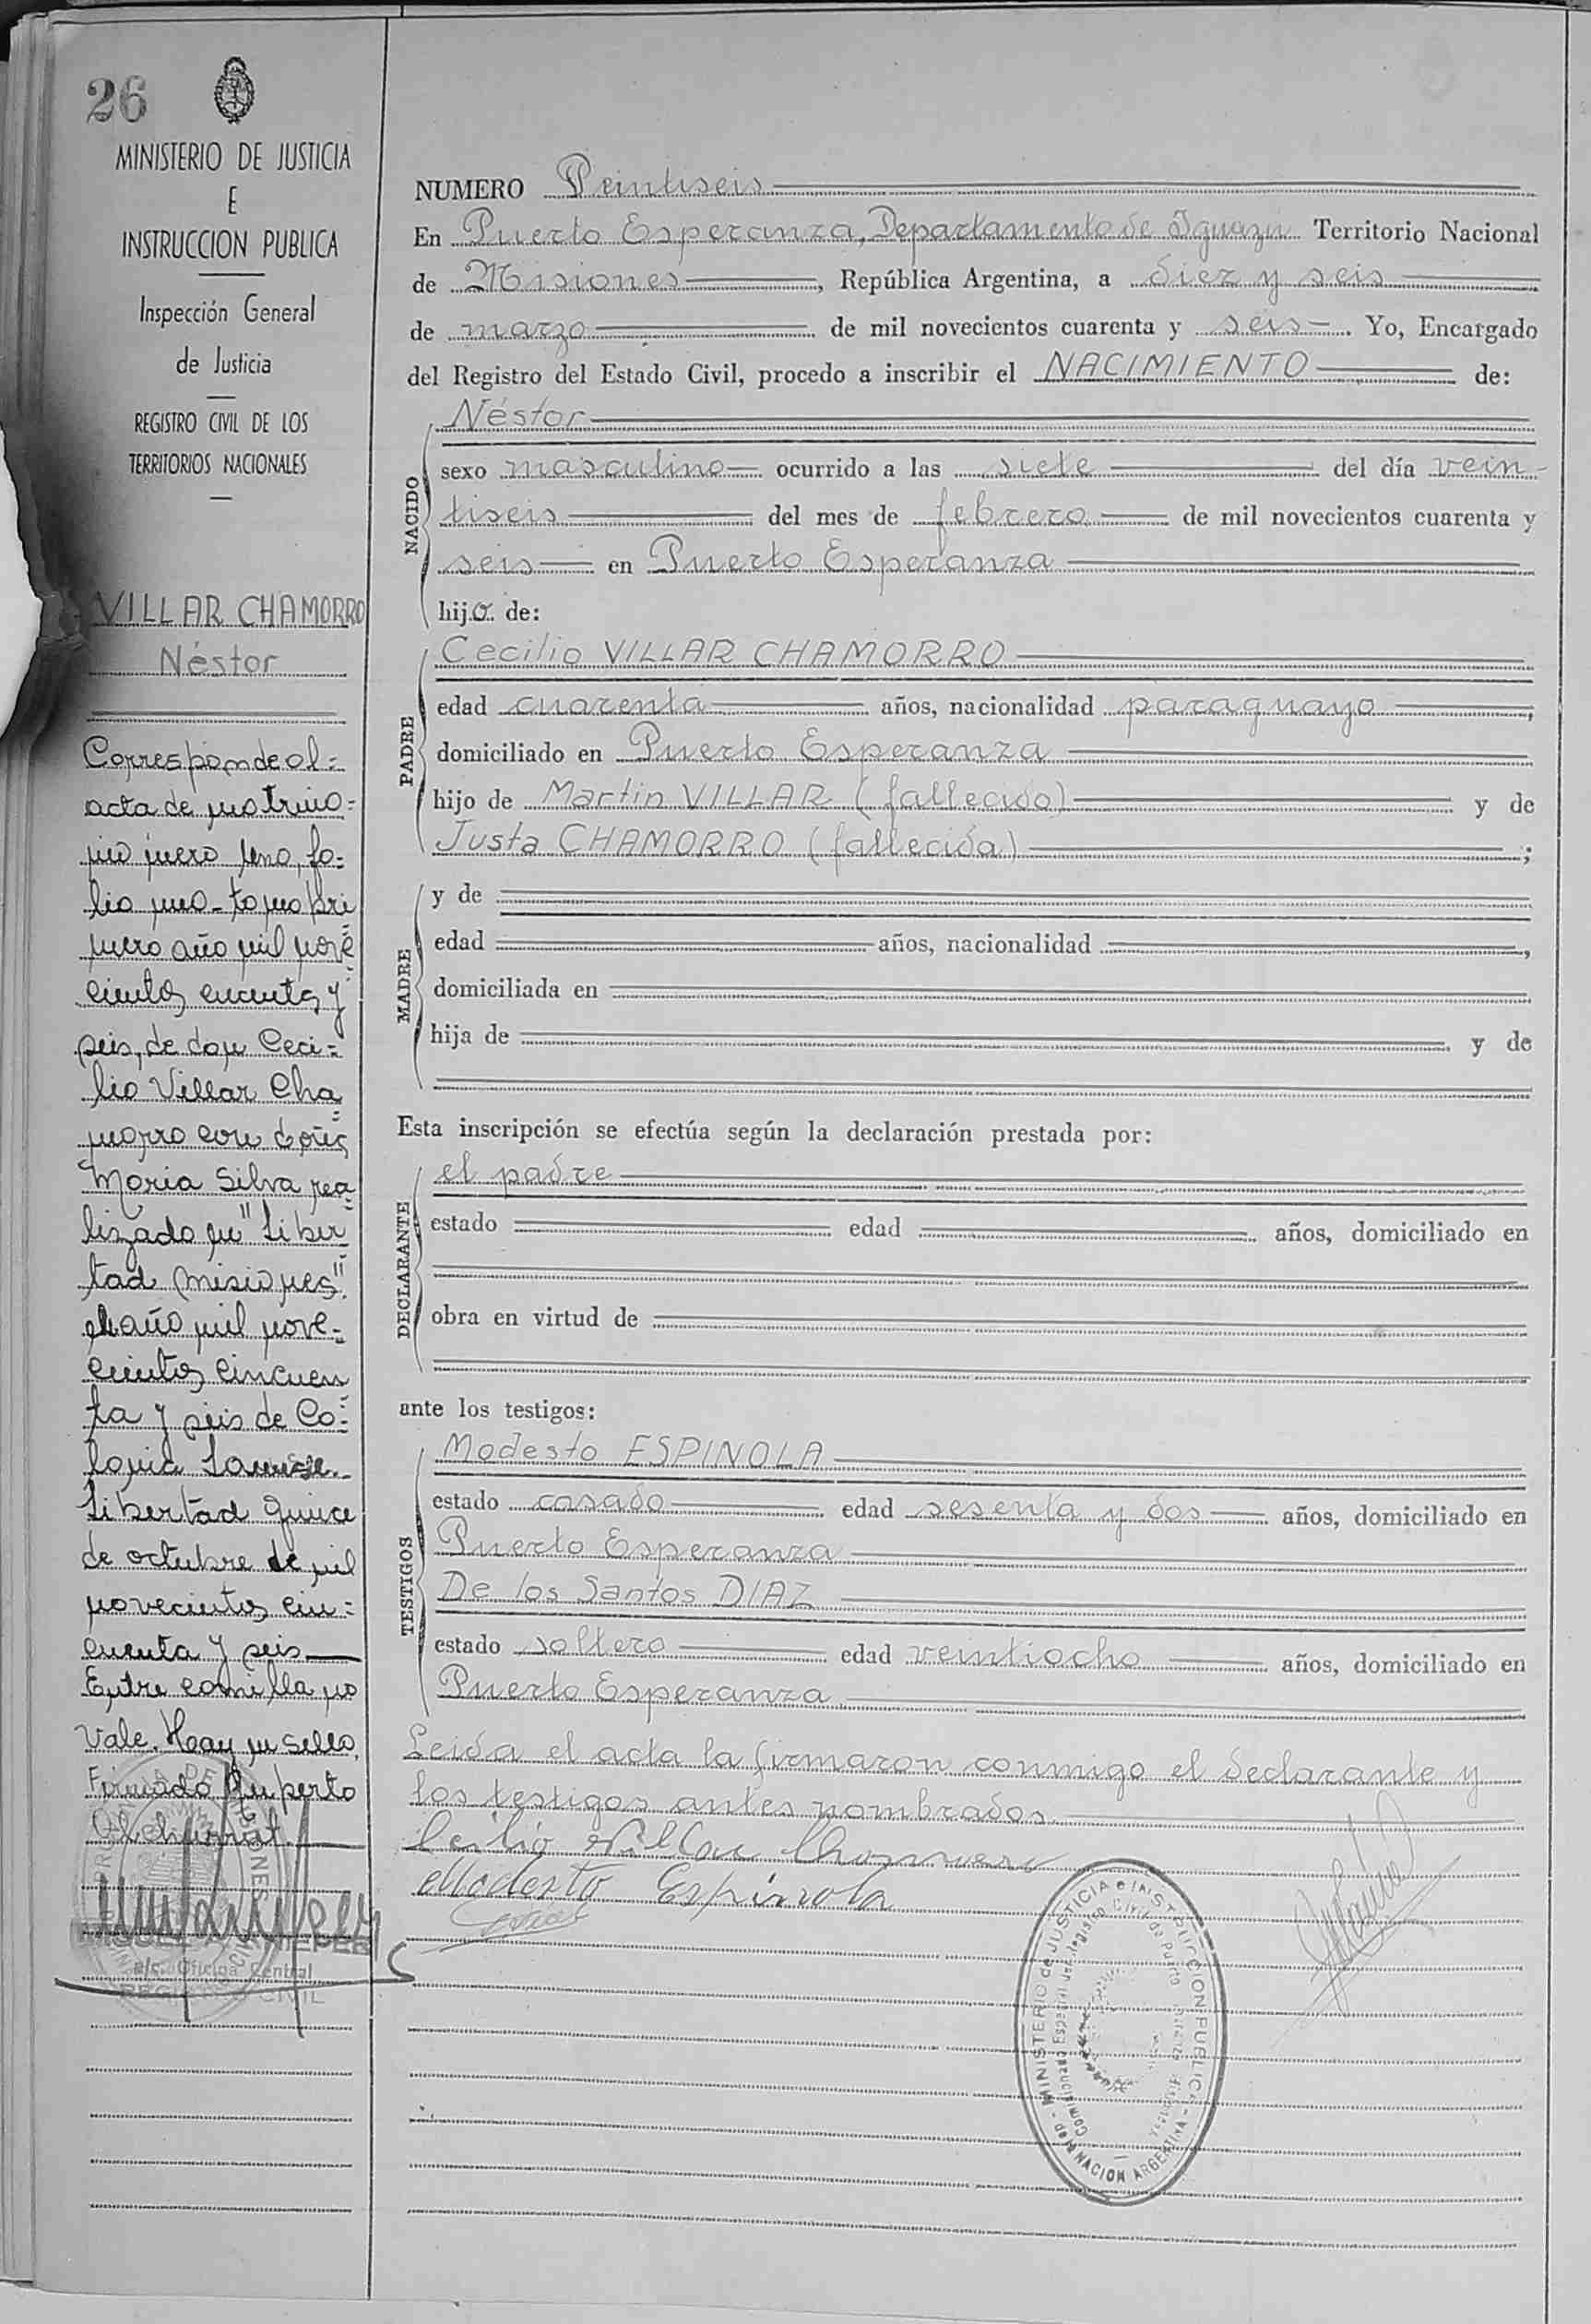 26
MINISTERIO DE JUSTICIA
E
INSTRUCCION PUBLICA
Inspección General
de Justicia
REGISTRO CIVIL DE LOS
TERRITORIOS NACIONALES
VILLAR CHAMORRO
Néstor
Corresponde al=
acta de matrimo=
nio
lio uno - tomo pri
mero año mil nove
cientos cincuenta y
seis, de don Ceci=
lio Villar Cha
morro con doña
Maria Silva rea
lizado en "Liber
tad Misiones"
el año mil nove=
cientos cincuen
ta y seis de Co=
lonia
Libertad quince
de octubre de mil
novecientos cin=
cuenta y seis
Entre comilla no
Vale. Hay un sello.
Firmado
Oficina Central
REGISTRO CIVIL
NUMERO Veintiseis
En Puerto Esperanza, Departamento de Iguazu Territorio Nacional
de Misiones, República Argentina, a diez y seis
de marzo de mil novecientos cuarenta y seis. Yo, Encargado
del Registro del Estado Civil, procedo a inscribir el NACIMIENTO de:
NACIDO
Néstor
sexo masculino ocurrido a las siete del día vein-
tiseis del mes de febrero de mil novecientos cuarenta y
seis en Puerto Esperanza
hijo de:
PADRE
Cecilio VILLAR CHAMORRO
edad cuarenta años, nacionalidad paraguayo,
domiciliado en Puerto Esperanza
hijo de Martin VILLAR (fallecido) y de
Justa CHAMORRO (fallecida);
MADRE
y de
edad años, nacionalidad,
domiciliada en
hija de y de
Esta inscripción se efectúa según la declaración prestada por:
DECLARANTE
el padre
estado edad años, domiciliado en
obra en virtud de
ante los testigos:
TESTIGOS
Modesto ESPINOLA
estado casado edad sesenta y dos años, domiciliado en
Puerto Esperanza
De los Santos DIAZ
estado soltero edad veintiocho años, domiciliado en
Puerto Esperanza
Leida el acta la firmaron conmigo el declarante y
los testigos antes nombrados.
Cecilio Villar Chamorro
Modesto Espinola
MINISTERIO de JUSTICIA e INSTRUCCION PUBLICA
NACION ARGENTINA